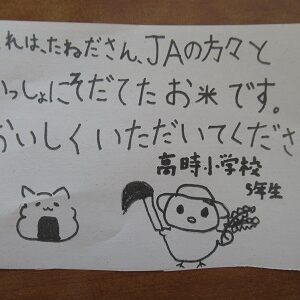 れは、たねださん、JAの方々と
っしょにそだてたお米です。
おいしくいただいてくださ
高時小学校
5年生